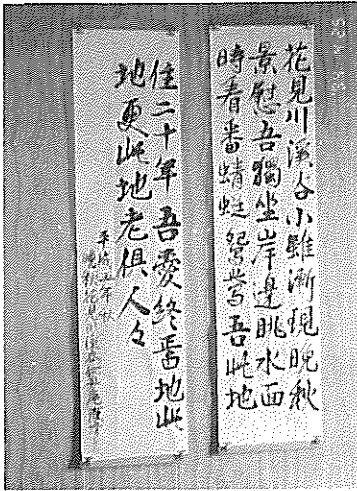 花見川溪谷小雖漸現晩秋
景慰吾獨坐岸邊眺水面
時看番蜻蜓鴛鴦吾此地
住二十年吾愛終焉地此
地更此地老俱人々
平成 年秋